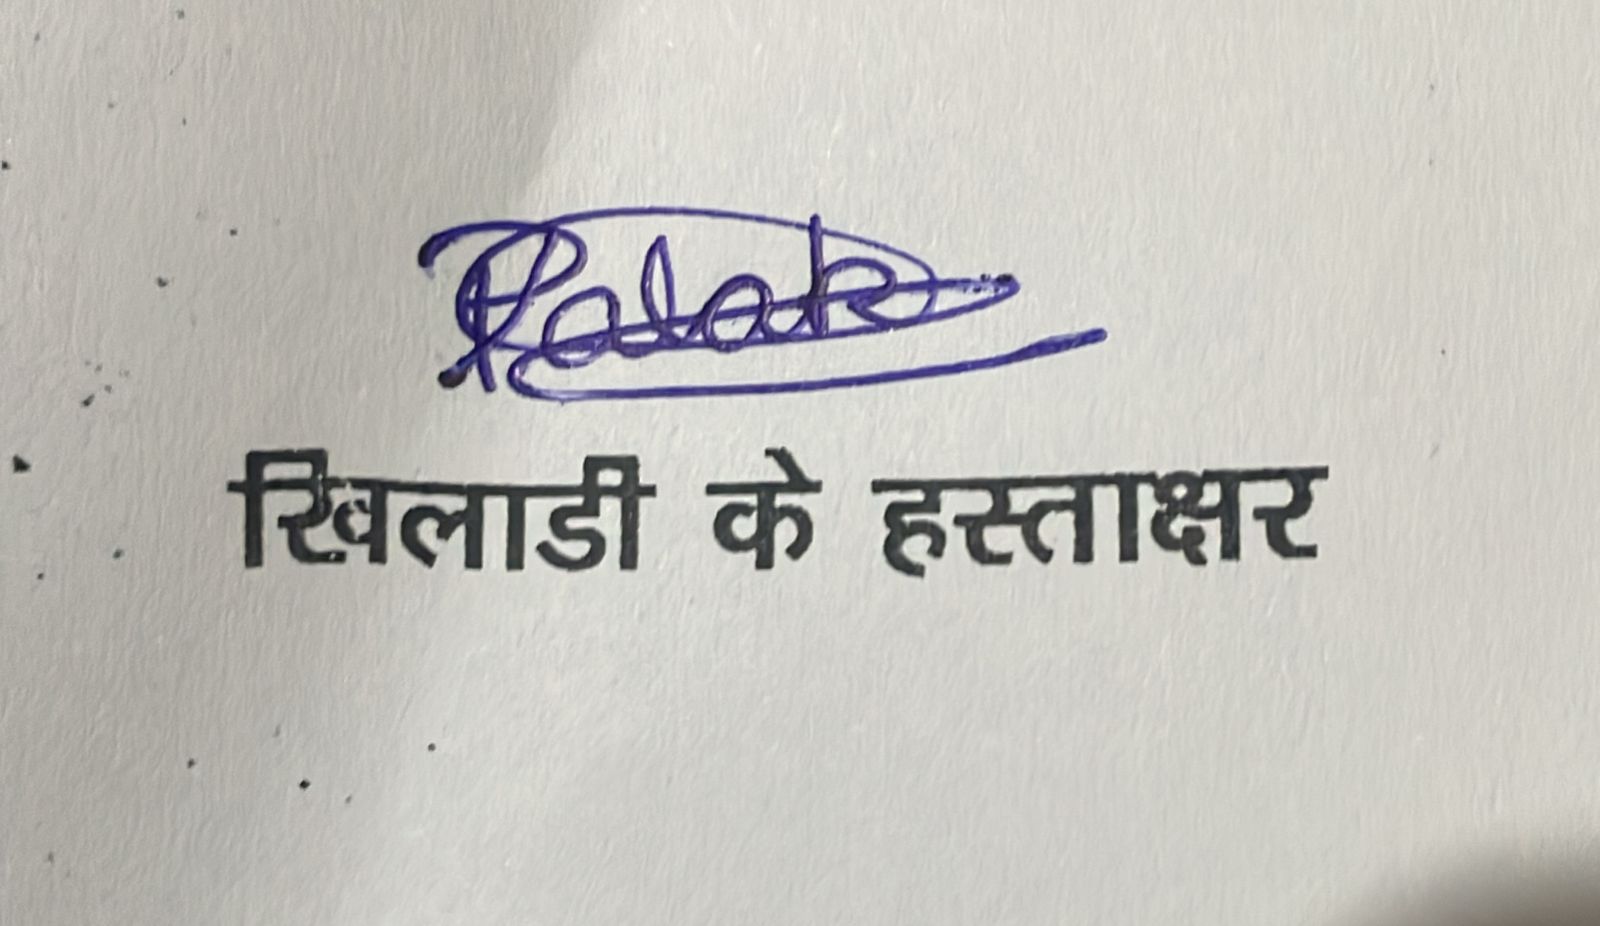 Palak
खिलाडी के हस्ताक्षर